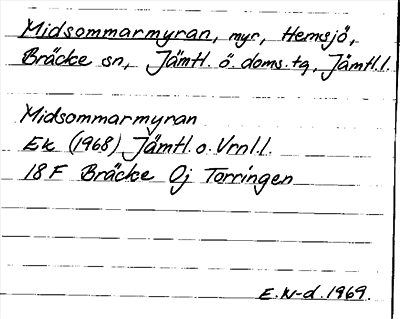 Midsommarmyran, myr, Hemsjö,
Bräcke sn, Jämtl. ö. doms. tg, Jämtl.l.
Midsommarmyran
Ek (1968) Jämtl. o. Vrnl.l.
18 F Bräcke Oj Torringen
E.N-d. 1969.